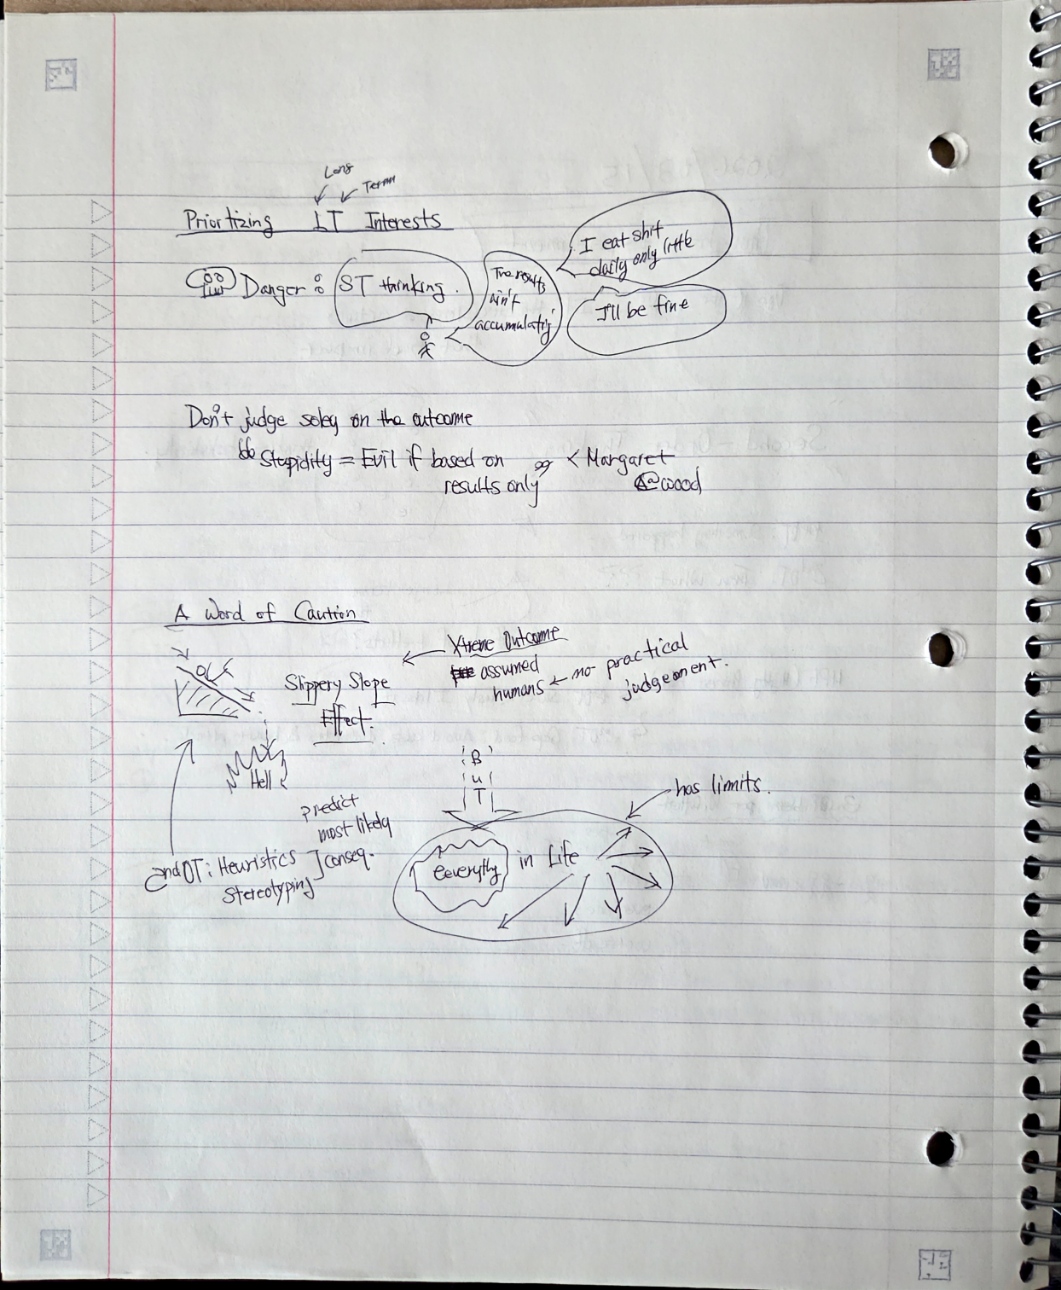 Long
Term
Prioritizing LT Interests
Danger : ST thinking.
The results
ain't
accumulating
I eat shit
daily only little
I'll be fine
Don't judge soley on the outcome
Stupidity = Evil if based on
results only
< Margaret
Atwood
A Word of Caution
Xtreme Outcome
assumed
humans ← no practical
judgement.
Slippery Slope
Effect.
Hell
BuT
has limits.
predict
most likely
conseq.
2ndOT: Heuristics
Stereotyping
Eeverythg in Life